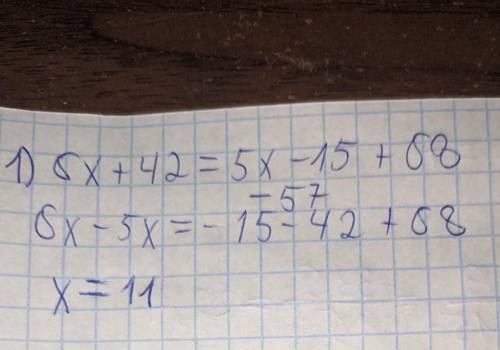 1) 6x + 42 = 5x - 15 + 68
-57
6x - 5x = - 15 - 42 + 68
x = 11